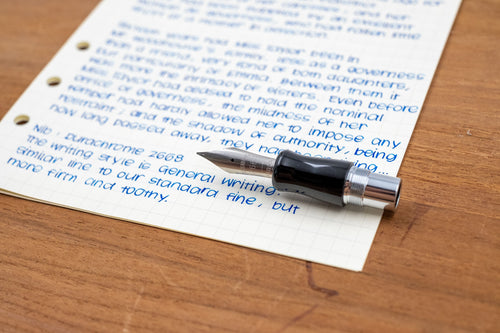 by an excellent
fallen little
of a mother in affection.
Sixteen years had Miss Taylor been in
family, less as a governess
than a friend, very fond of both daughters,
but particularly of Emma. Between them it
was more the intimacy of sisters. Even before
Miss Taylor had ceased to hold the nominal
office of governess, the mildness of her
temper had hardly allowed her to impose any
restraint; and the shadow of authority, being
now long passed away, they had been
Nib : Durachrome 2668
The writing style is General Writing.
Similar line to our standard fine, but
more firm and toothy.